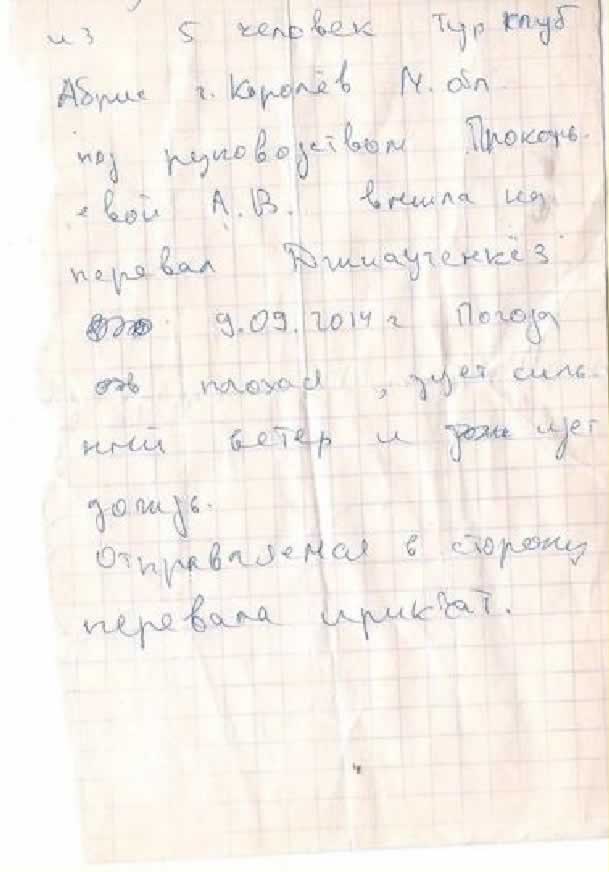 из 5 человек Тур клуб
Абрис г. Королёв М. обл.
под руководством Прокопь-
евой А.В. вышла на
перевал Джикаученкёз
9.09.2014 г Погода
плохая, дует силь-
ный ветер и идет
дождь.
Отправляемся в сторону
перевала Ирикчат.